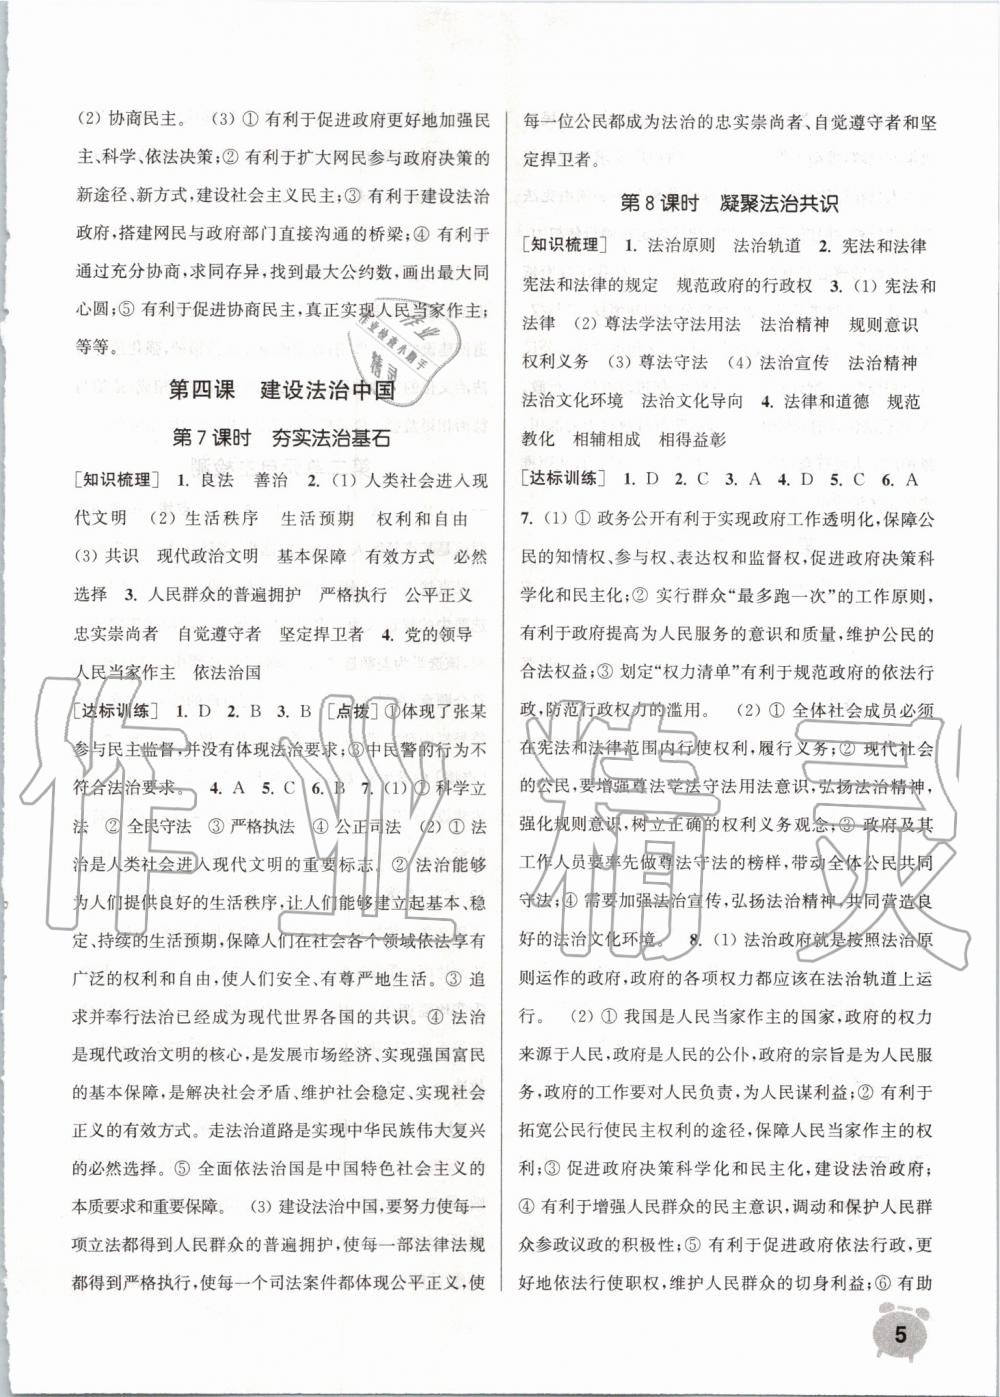 (2) 协商民主。 (3) ① 有利于促进政府更好地加强民
主、科学、依法决策;② 有利于扩大网民参与政府决策的
新途径、新方式,建设社会主义民主;③ 有利于建设法治
政府,搭建网民与政府部门直接沟通的桥梁;④ 有利于
通过充分协商,求同存异,找到最大公约数,画出最大同
心圆;⑤ 有利于促进协商民主,真正实现人民当家作主。
等等。
第四课 建设法治中国
第 7 课时 夯实法治基石
[知识梳理] 1. 良法 善治 2. (1) 人类社会进入现
代文明 (2) 生活秩序 生活预期 权利和自由
(3) 共识 现代政治文明 基本保障 有效方式 必然
选择 3. 人民群众的普遍拥护 严格执行 公平正义
忠实崇尚者 自觉遵守者 坚定捍卫者 4. 党的领导
人民当家作主 依法治国
[达标训练] 1. D 2. B 3. B [点拨] ①体现了张某
参与民主监督,并没有体现法治要求;③中民警的行为不
符合法治要求。 4. A 5. C 6. B 7. (1) ① 科学立
法 ② 全民守法 ③ 严格执法 ④ 公正司法 (2) ① 法
治是人类社会进入现代文明的重要标志。② 法治能够
为人们提供良好的生活秩序,让人们能够建立起基本、稳
定、持续的生活预期,保障人们在社会各个领域依法享有
广泛的权利和自由,使人们安全、有尊严地生活。③ 追
求并奉行法治已经成为现代世界各国的共识。④ 法治
是现代政治文明的核心,是发展市场经济、实现强国富民
的基本保障,是解决社会矛盾、维护社会稳定、实现社会
正义的有效方式。走法治道路是实现中华民族伟大复兴
的必然选择。⑤ 全面依法治国是中国特色社会主义的
本质要求和重要保障。 (3) 建设法治中国,要努力使每一
项立法都得到人民群众的普遍拥护,使每一部法律法规
都得到严格执行,使每一个司法案件都体现公平正义,使
每一位公民都成为法治的忠实崇尚者、自觉遵守者和坚
定捍卫者。
第 8 课时 凝聚法治共识
[知识梳理] 1. 法治原则 法治轨道 2. 宪法和法律
宪法和法律的规定 规范政府的行政权 3. (1) 宪法和
法律 (2) 尊法学法守法用法 法治精神 规则意识
权利义务 (3) 尊法守法 (4) 法治宣传 法治精神
法治文化环境 法治文化导向 4. 法律和道德 规范
教化 相辅相成 相得益彰
[达标训练] 1. D 2. C 3. A 4. D 5. C 6. A
7. (1) ① 政务公开有利于实现政府工作透明化,保障公
民的知情权、参与权、表达权和监督权,促进政府决策科
学化和民主化;② 实行群众“最多跑一次”的工作原则,
有利于政府提高为人民服务的意识和质量,维护公民的
合法权益;③ 划定“权力清单”有利于规范政府的依法行
政,防范行政权力的滥用。 (2) ① 全体社会成员必须
在宪法和法律范围内行使权利,履行义务;② 现代社会
的公民,要增强尊法学法守法用法意识,弘扬法治精神,
强化规则意识,树立正确的权利义务观念;③ 政府及其
工作人员要率先做尊法守法的榜样,带动全体公民共同
守法;④ 需要加强法治宣传,弘扬法治精神,共同营造良
好的法治文化环境。 8. (1) 法治政府就是按照法治原
则运作的政府,政府的各项权力都应该在法治轨道上运
行。 (2) ① 我国是人民当家作主的国家,政府的权力
来源于人民,政府是人民的公仆,政府的宗旨是为人民服
务,政府的工作要对人民负责,为人民谋利益;② 有利于
拓宽公民行使民主权利的途径,保障人民当家作主的权
利;③ 促进政府决策科学化和民主化,建设法治政府;
④ 有利于增强人民群众的民主意识,调动和保护人民群
众参政议政的积极性;⑤ 有利于促进政府依法行政,更
好地依法行使职权,维护人民群众的切身利益;⑥ 有助
5
作业精灵